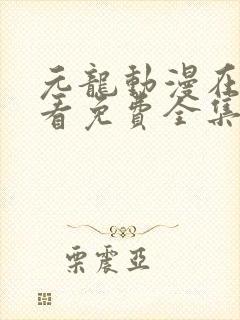 元龍動漫在
看免費全集
栗震亞